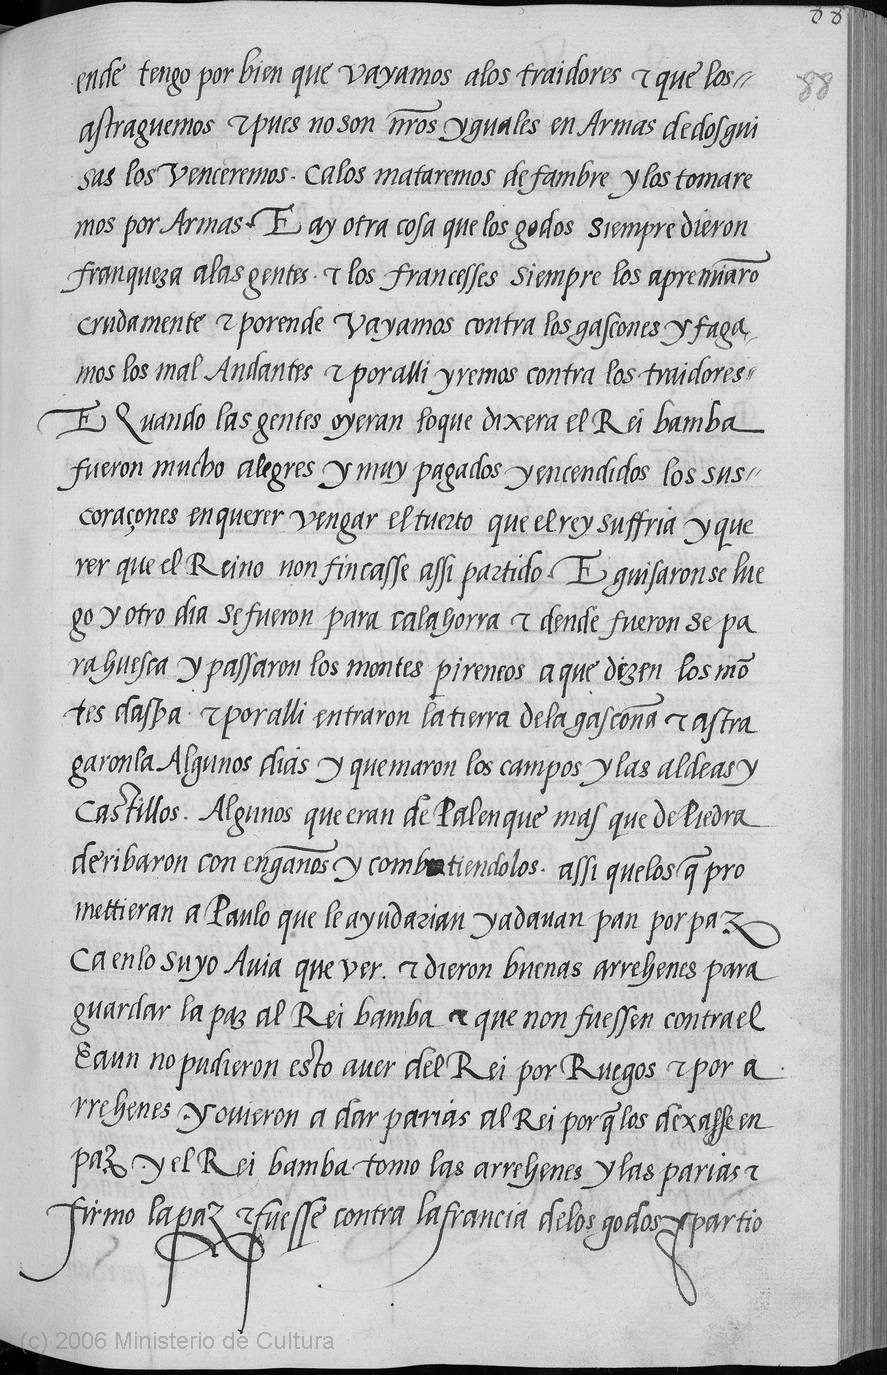 88
88
ende tengo por bien que vayamos alos traidores τ que los〃
astraguemos τ pues no son nr̃os yguales en Armas de dos gui
sas los Venceremos. Ca los mataremos de fambre y los tomare
mos por Armas. E ay otra cosa que los godos siempre dieron
franqueza alas gentes. τ los francesses siempre los apremiarõ
crudamente τ porende Vayamos contra los gascones y faga〃
mos los mal Andantes τ por alli yremos contra los traidores〃
E Quando las gentes oyeran loque dixera el Rei bamba
fueron mucho alegres y muy pagados y encendidos los sus〃
coraçones en querer vengar el tuerto que el rey suffria y que
rer que el Reino non fincasse assi partido. E guisaron se lue
go y otro dia se fueron para calahorra τ dende fueron se pa
ra huesca y passaron los montes pireneos a que dizen los mõ
tes daspa. τ por alli entraron la tierra de la gascoña τ astra
garonla Algunos dias y quemaron los campos y las aldeas y
Castillos. Algunos que eran de Palenque mas que de Piedra
deribaron con engaños y combatiendolos. assi que los q̃ pro
mettieran a Paulo que le ayudarian yadauan pan por paz
Ca en lo suyo Auia que ver. τ dieron buenas arrehenes para
guardar la paz al Rei bamba τ que non fuessen contra el
E aun no pudieron esto auer del Rei por Ruegos τ por a
rrehenes. y ouieron a dar parias al Rei por q̃ los dexasse en
paz. y el Rei bamba tomo las arrehenes y las parias τ
firmo la paz τ fuesse contra la francia de los godos y partio
(c) 2006 Ministerio de Cultura